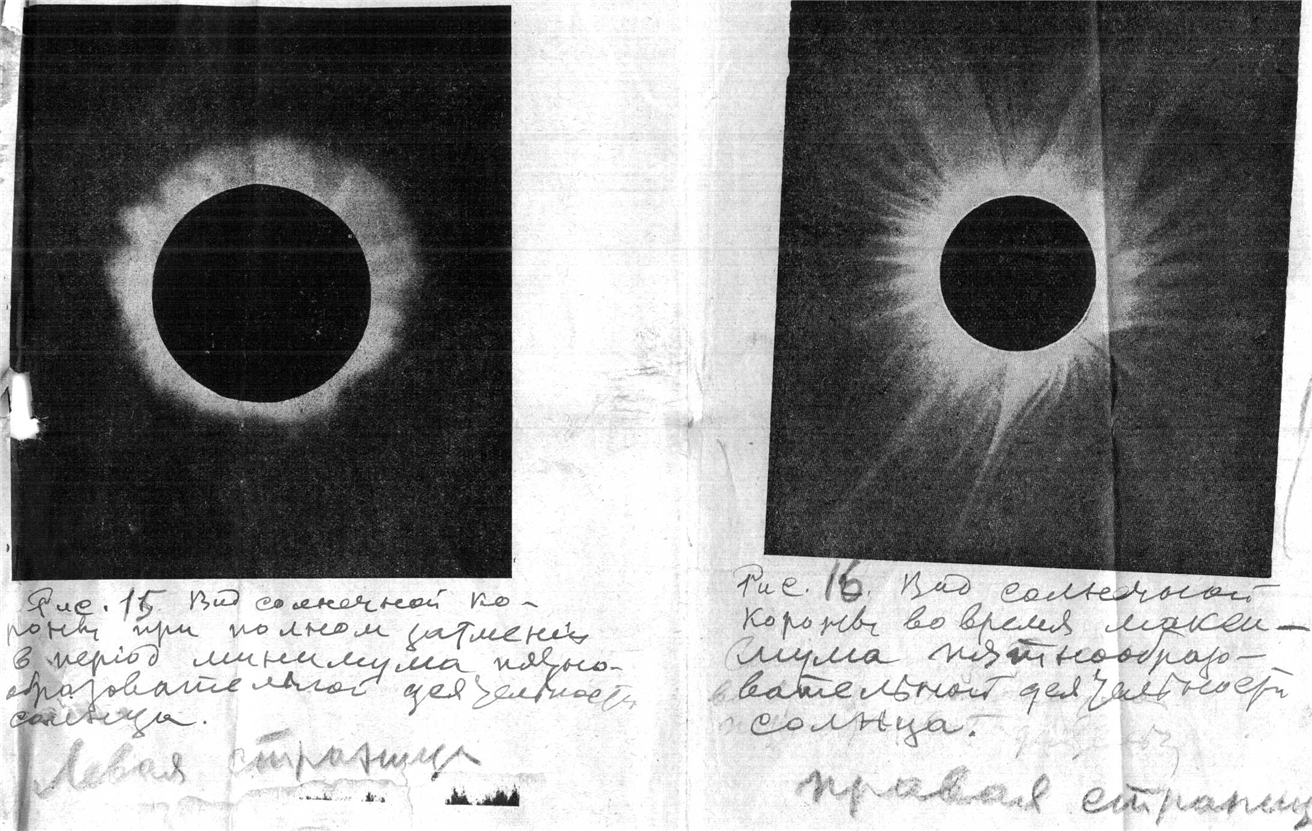 Рис. 15. Вид солнечной ко-
роны при полном затмении
в період минимума пятно-
образовательной деятельности
солнца.
Левая страница
Рис. 16. Вид солнечной
короны во время макси-
мума пятнообразо-
вательной деятельности
солнца.
правая страниц